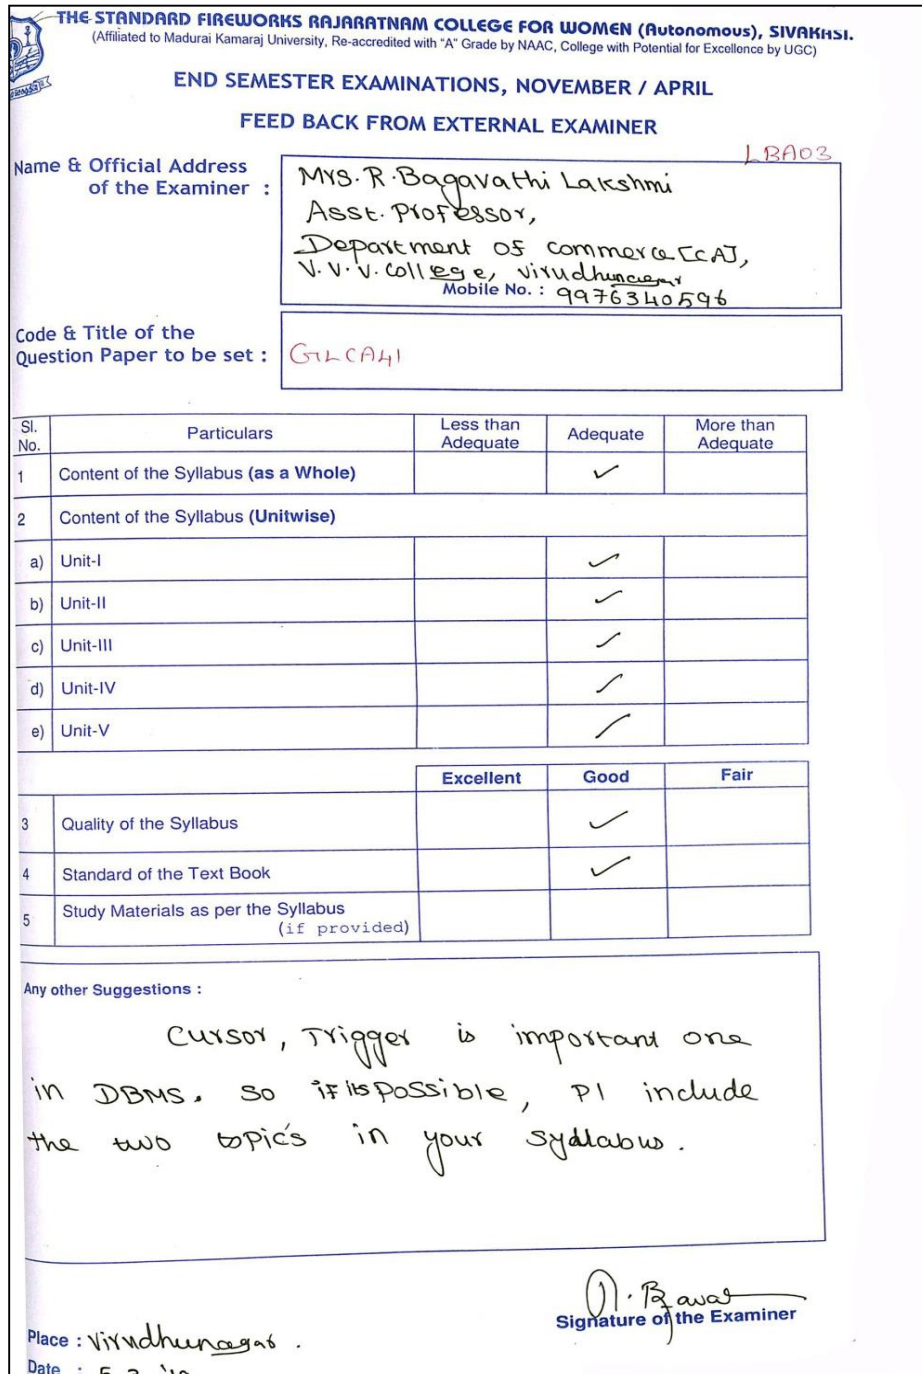 THE STANDARD FIREWORKS RAJARATNAM COLLEGE FOR WOMEN (Autonomous), SIVAKASI.
(Affiliated to Madurai Kamaraj University, Re-accredited with "A" Grade by NAAC, College with Potential for Excellence by UGC)
END SEMESTER EXAMINATIONS, NOVEMBER / APRIL
FEED BACK FROM EXTERNAL EXAMINER
LBA03
Name & Official Address
of the Examiner :
Mrs. R. Bagavathi Lakshmi
Asst. Professor,
Department of commerce [CA],
V.V.V. college, Virudhunagar
Mobile No. : 9976340596
Code & Title of the
Question Paper to be set :
GLCA41
Sl. No. Particulars Less than Adequate Adequate More than Adequate
1 Content of the Syllabus (as a Whole) ✓
2 Content of the Syllabus (Unitwise)
a) Unit-I ✓
b) Unit-II ✓
c) Unit-III ✓
d) Unit-IV ✓
e) Unit-V ✓
Excellent Good Fair
3 Quality of the Syllabus ✓
4 Standard of the Text Book ✓
5 Study Materials as per the Syllabus
(if provided)
Any other Suggestions :
Cursor, Trigger is important one
in DBMS. So if its possible, Pl include
the two topic's in your syllabus.
Signature of the Examiner
Place : Virudhunagar.
Date :